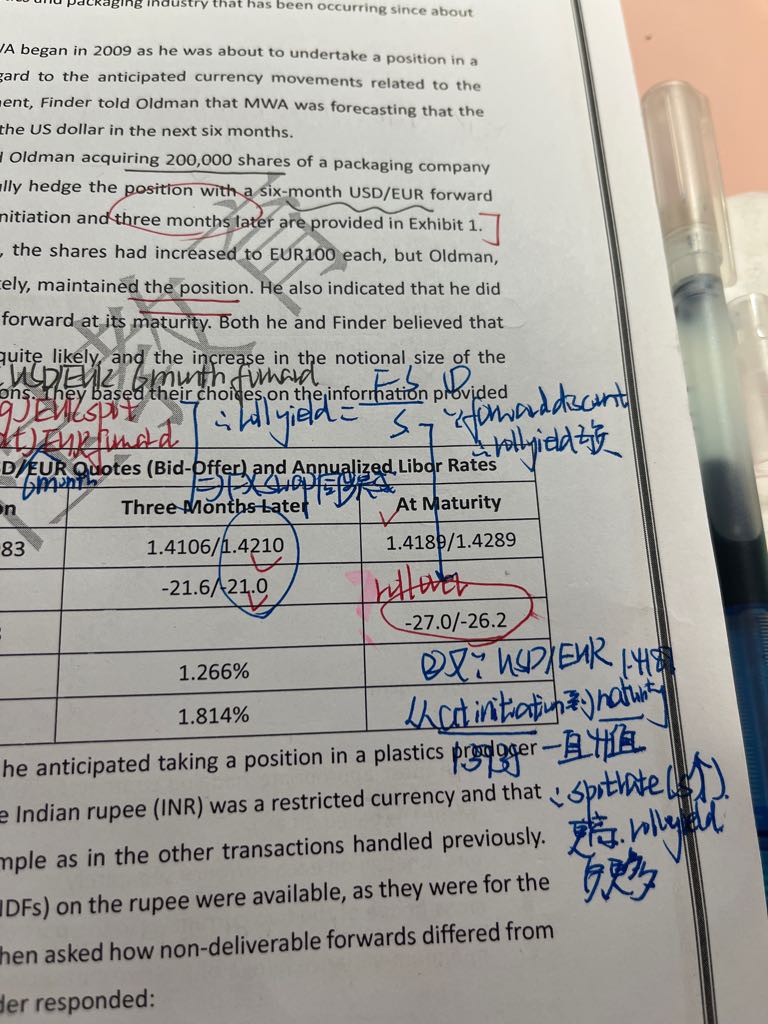 and packaging industry that has been occurring since about
VA began in 2009 as he was about to undertake a position in a
gard to the anticipated currency movements related to the
ment, Finder told Oldman that MWA was forecasting that the
the US dollar in the next six months.
Oldman acquiring 200,000 shares of a packaging company
ully hedge the position with a six-month USD/EUR forward
nitiation and three months later are provided in Exhibit 1.
, the shares had increased to EUR100 each, but Oldman,
tely, maintained the position. He also indicated that he did
forward at its maturity. Both he and Finder believed that
quite likely, and the increase in the notional size of the
USD/EUR 6month forward
ons. They based their choices on the information provided
EUR spot
∴ roll yield = F-S / S
∵ forward discount
EUR forward
∴ roll yield
D/EUR Quotes (Bid-Offer) and Annualized Libor Rates
6month
on Three Months Later At Maturity
983 1.4106/1.4210 1.4189/1.4289
-21.6/-21.0 rollover
-27.0/-26.2
1.266% ②又∵ USD/EUR 1.418
1.814% 从at initiation到maturity
he anticipated taking a position in a plastics producer 一直升值
e Indian rupee (INR) was a restricted currency and that ∴ spot rate (S↑).
mple as in the other transactions handled previously. roll yield
NDFs) on the rupee were available, as they were for the 负更多
hen asked how non-deliverable forwards differed from
der responded: